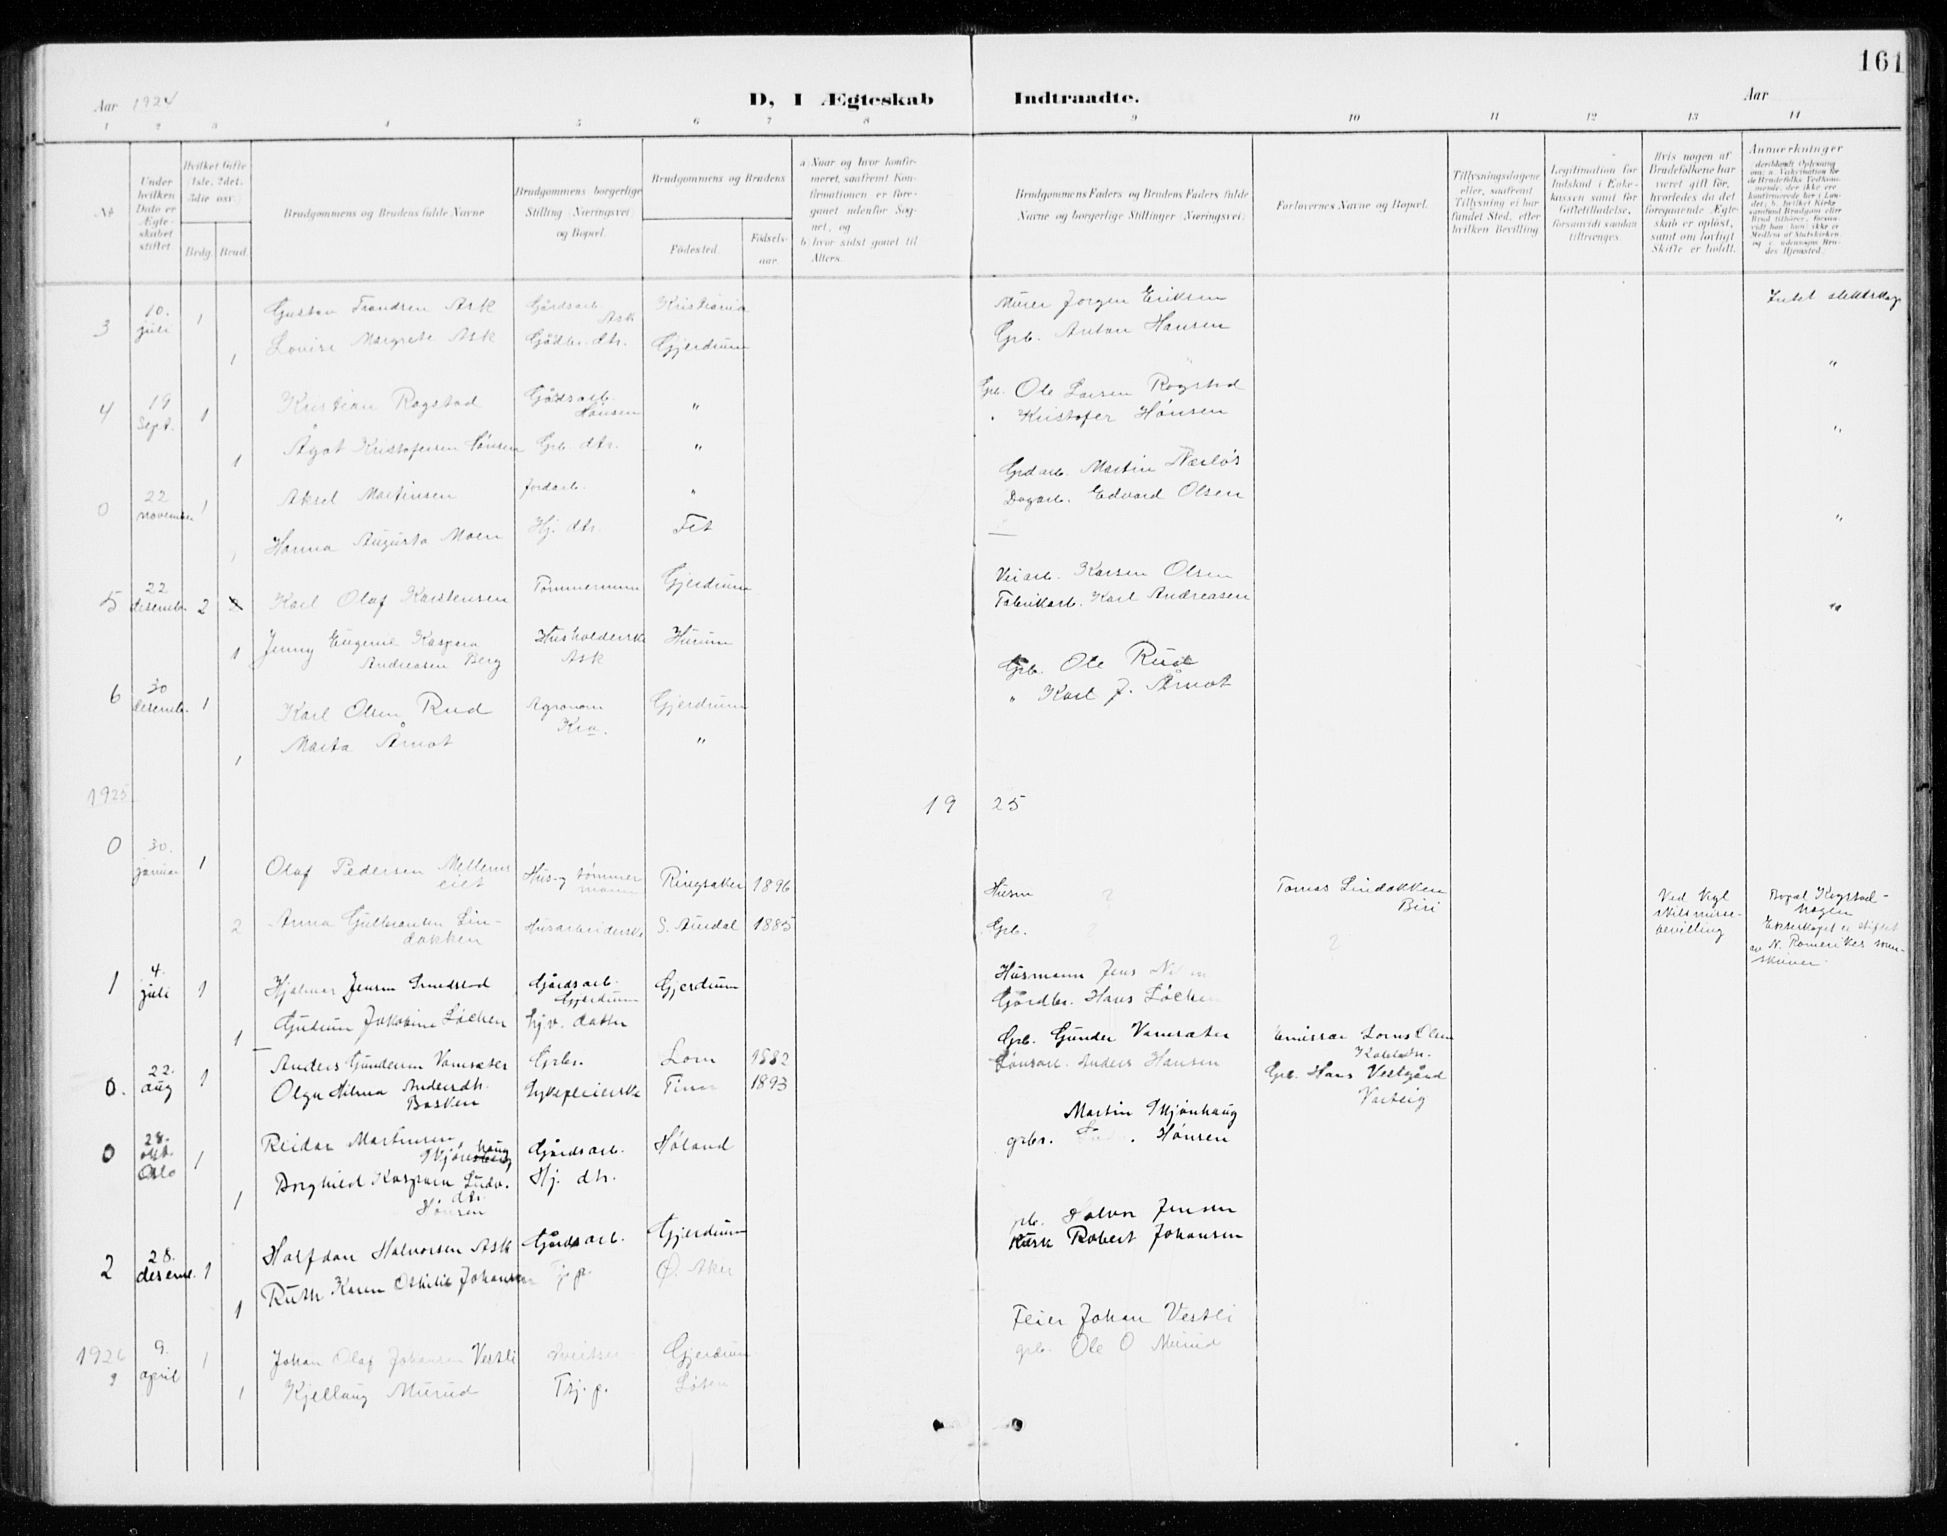 161
Aar 1924
D, I Ægteskab Indtraadte.
Aar
1 2 3 4 5 6 7 8 9 10 11 12 13 14
№
Under hvilken Dato er Ægteskabet stiftet.
Hvilket Gifte (1ste, 2det, 3die osv.)
Brdg. Brud.
Brudgommens og Brudens fulde Navne
Brudgommens borgerlige Stilling (Næringsvei) og Bopæl.
Brudgommens og Brudens
Födested.
Födselsaar.
a Naar og hvor konfirmeret, saafremt Konfirmationen er foregaaet udenfor Sognet, og
b hvor sidst gaaet til Alters.
Brudgommens Faders og Brudens Faders fulde Navne og borgerlige Stillinger (Næringsvei)
Forlovernes Navne og Bopæl.
Tillysningsdagene eller, saafremt Tillysning ei har fundet Sted, efter hvilken Bevilling
Legitimation for Indskud i Enkekassen samt for Giftetilladelse, forsaavidt saadan tiltrænges.
Hvis nogen af Brudefolkene har været gift før, hvorledes da det foregaaende Ægteskab er opløst, samt om lovligt Skifte er holdt.
Anmærkninger
3 10. juli 1 Gustav Frandsen Ask Gårdsarb. Ask Kristiania Murer Jørgen Eriksen Intet slektskap
1 Lovise Margrete Ask Gådbr. dtr. Gjerdrum Grb. Anton Hansen
"
4 19 Sept. 1 Kristian Rogstad Gårdsarb. Hønsen " Grb. Ole Larsen Rogstad
1 Ågot Kristofersen Hønsen Grb. dtr. " " Kristofer Hønsen
"
0 22 november 1 Aksel Martinsen Jordarb. " Grdarb. Martin Næsløs
1 Hanna Augusta Moen Hj. dtr. Fet Dagarb. Edvard Olsen
"
5 22 desemb. 2 Karl Olaf Karstensen Tømmermann Gjerdrum Veiarb. Karsen Olsen
1 Jenny Eugenie Kaspara Andreasen Berg Husholderske Ask Hurum Fabrikarb. Karl Andreasen
"
6 30 desemb. 1 Karl Olsen Rud Agronom Kra. Gjerdrum Grb. Ole Rud
1 Marta Årnot " " Karl J. Årnot
1925 19 25
0 30. januar 1 Olaf Pedersen Mellemeiet Hus-og tømmermann Ringsaker 1896 Husm ? Tomas Lindokken Biri
2 Anna Gulbrandsen Lindokken Husarbeiderske S. Aurdal 1885 Grb. ? ?
Ved Kgl skilsmissebevilling
Bopæl Kogstadhagen Ekteskapet er stiftet av N. Romerikes sorenskriver.
1 4. juli 1 Hjalmar Jensen Smedstad Gårdsarb. Gjerdrum Gjerdrum Husmann Jens
1 Gudrun Jakobine Løchen Hjv. datter Gårdbr. Hans Løchen
0. 22. aug 1 Anders Gundersen Vamsæter Grbr. Lom 1882 Grb. Gunder Vamsæter Emissær Lorns Olsen
Olga Hilma Andersdtr. Basken Sykepleierske Finn 1893 Lønsarb. Anders Hansen Grb. Hans Vestgård Varteig
0 28. okt. Oslo 1 Reidar Martinsen Skjønhaug Gårdsarb. Høland Martin Skjønhaug
1 Borghild Kaspara Ludv. dtr. Hønsen Hj. dtr. grbr. Hønsen
2 28. desemb. 1 Halfdan Halvorsen Ask Gårdsarb. Gjerdrum grb. Halvor Jensen
1 Ruth Karen Othilie Johansen Tj.p. Ø. Aker Kusk Robert Johansen
1926 9. april 1 Johan Olaf Johansen Vestli Gjerdrum Feier Johan Vestli
1 Kjellaug Murud Tj. p. Løten grb. Ole O Murud